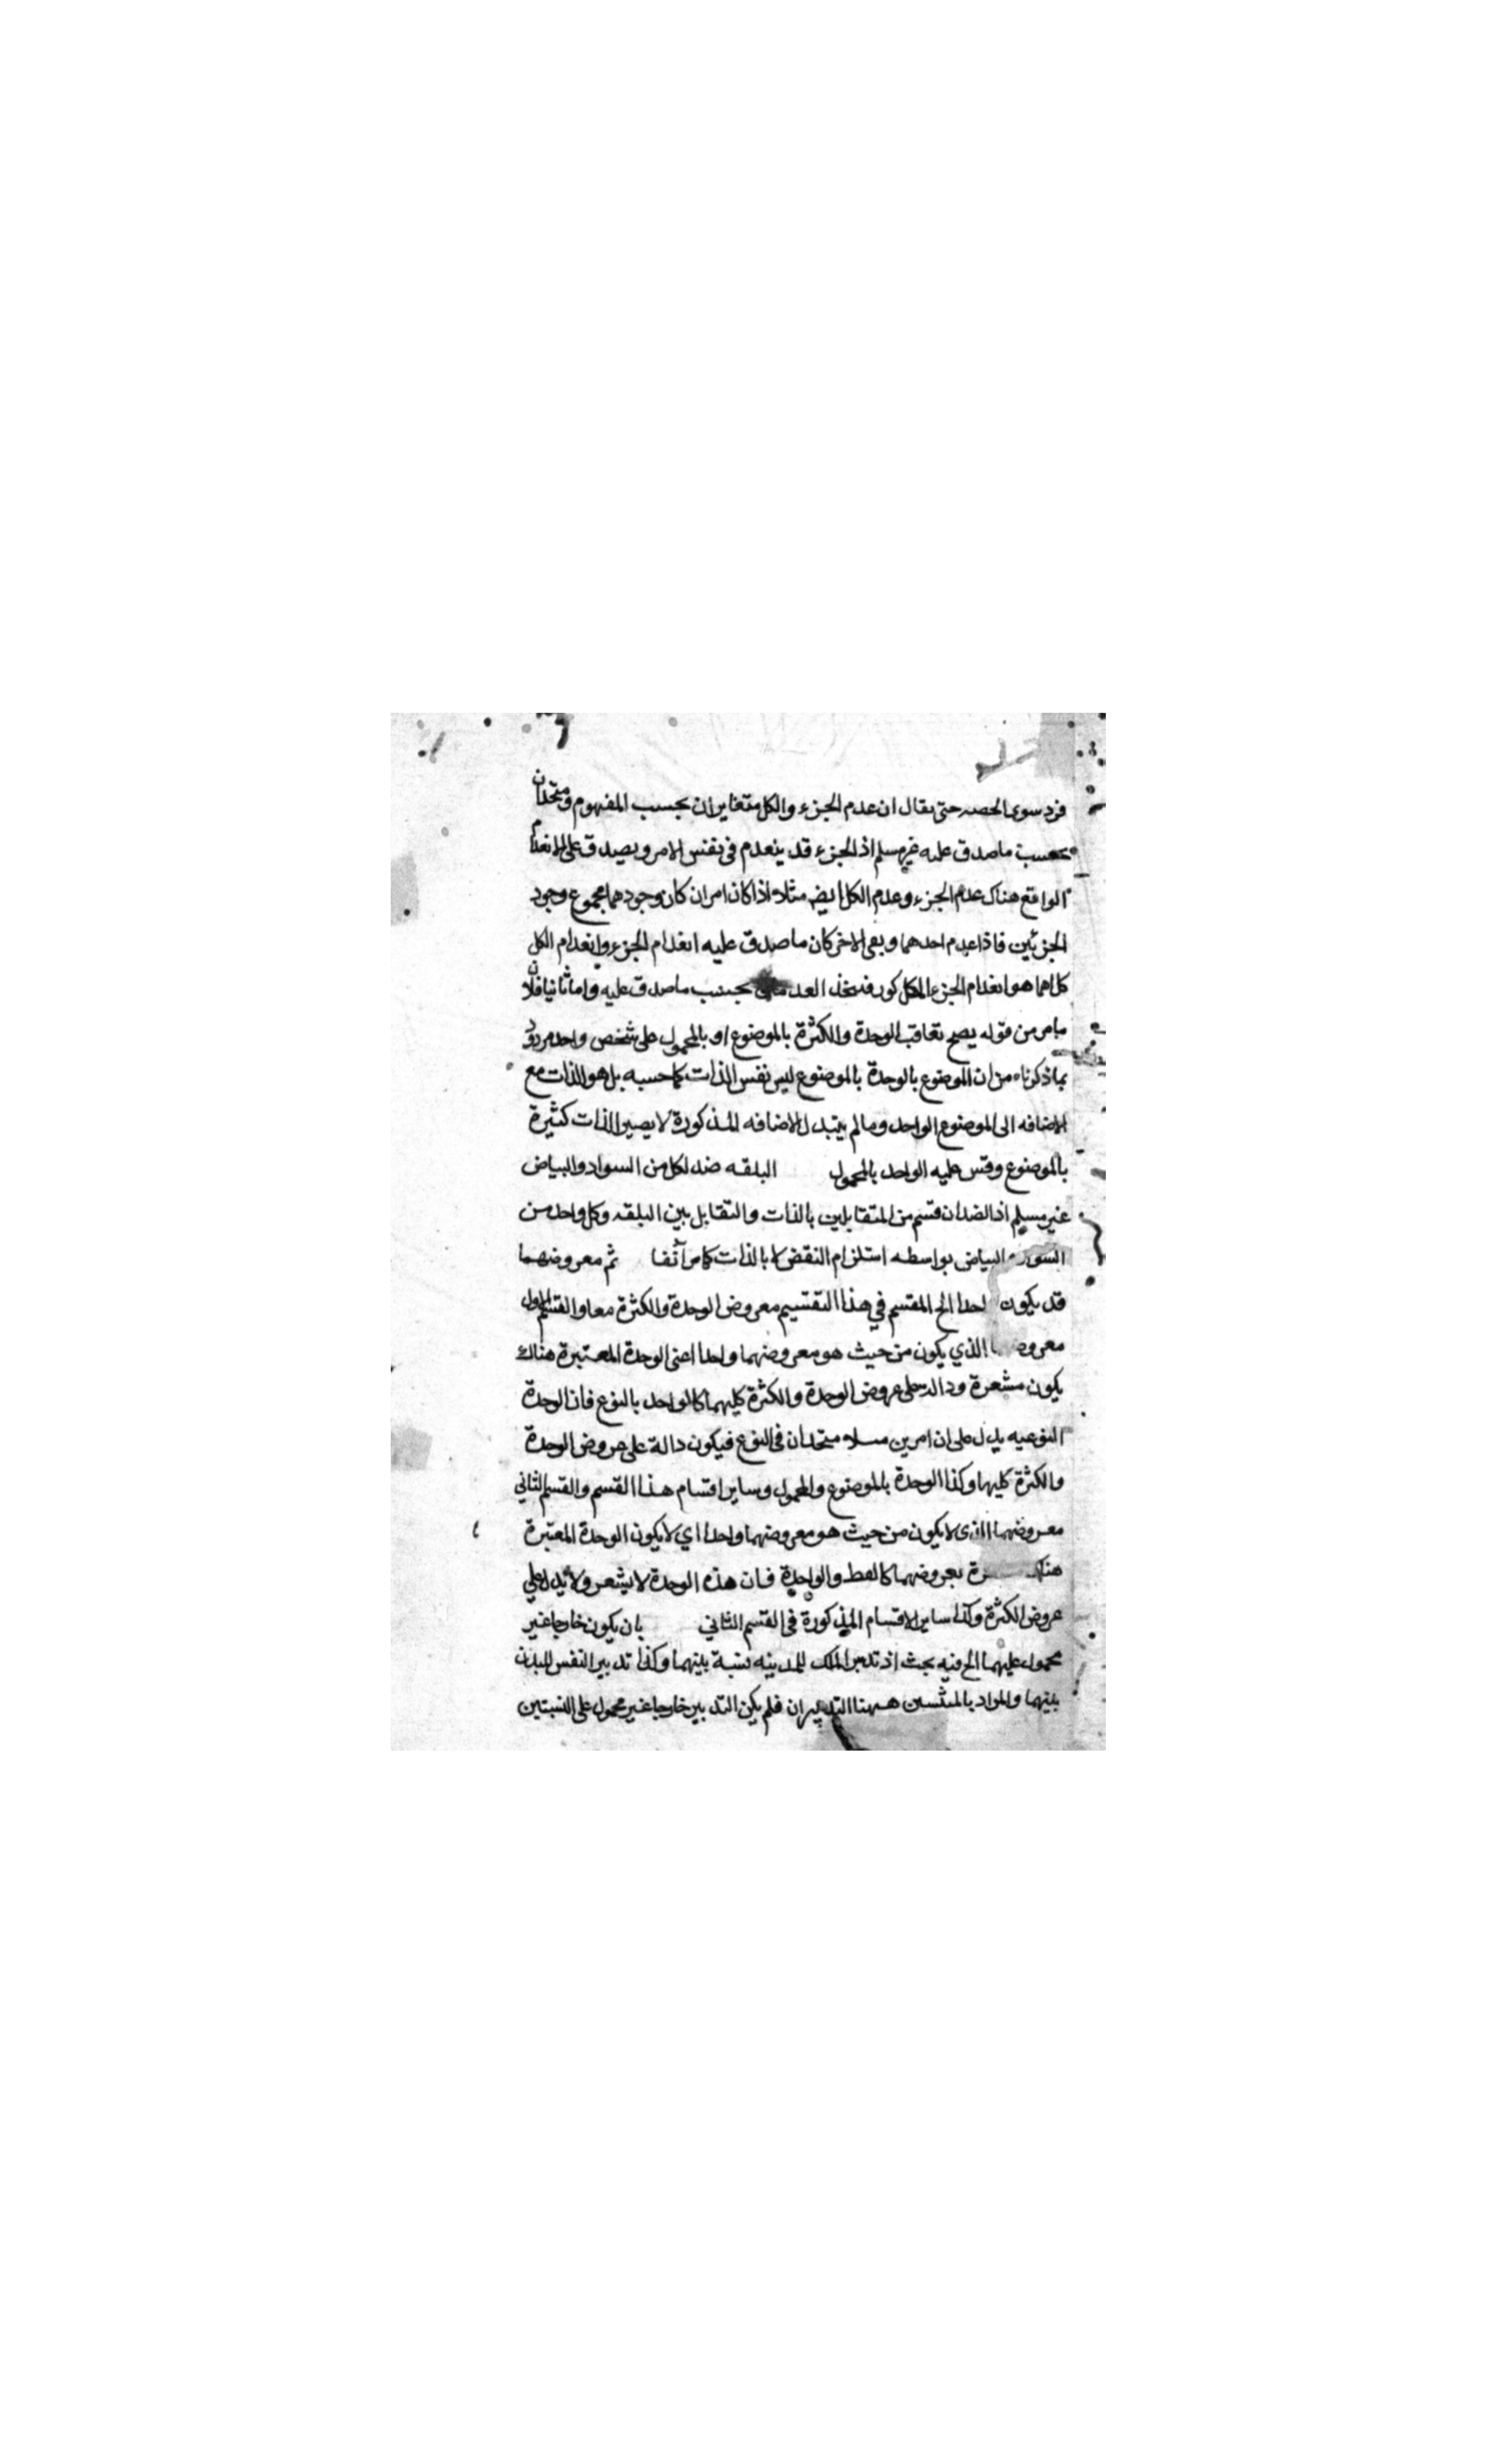 فرد سوى الحصه حتى يقال ان عدم الجزء والكل متغايران بحسب المفهوم ومتحدان
بحسب ما صدق عليه غير مسلم اذ الجزء قد ينعدم فى نفس الامر ويصدق على الانعدام
الواقع هناك عدم الجزء وعدم الكل ايضا مثلا اذا كان امران كان وجودهما مجموع وجود
الجزئين فاذا عدم احدهما وبقى الاخر كان ما صدق عليه انعدام الجزء وانعدام الكل
كلاهما هو انعدام الجزء المذكور فيتحد العدمان بحسب ما صدق عليه واما ثانيا فلان
ما مر من قوله يصح تعاقب الوحدة والكثرة بالموضوع او بالمحمول على شخص واحد مردود
بما ذكرناه من ان الموضوع بالوحدة بالموضوع ليس نفس الذات كما حسبه بل هو الذات مع
الاضافه الى الموضوع الواحد وما لم يتبدل الاضافه المذكورة لا يصير الذات كثيرة
بالموضوع وقس عليه الواحد بالمحمول البلقه ضد لكل من السواد والبياض
غير مسلم اذ الضدان قسم من المتقابلين بالذات والتقابل بين البلقه وكل واحد من
السواد والبياض بواسطه استلزام النقض لا بالذات كما مر آنفا ثم معروضهما
قد يكون واحدا الخ المقسم في هذا التقسيم معروض الوحدة والكثرة معا والقسم الاول
معروضهما الذي يكون من حيث هو معروضهما واحدا اعنى الوحدة المعتبرة هناك
يكون مشعرة ودالة على عروض الوحدة والكثرة كليهما كالواحد بالنوع فان الوحدة
النوعيه يدل على ان امرين مثلا متحدان فى النوع فيكون دالة على عروض الوحدة
والكثرة كليهما وكذا الوحدة بالموضوع والمحمول وساير اقسام هذا القسم والقسم الثاني
معروضهما الذى لا يكون من حيث هو معروضهما واحدا اي لا يكون الوحدة المعتبرة
هناك مشعرة بعروضهما كالنقطة والواحدة فان هذه الوحدة لا يشعر ولا يدل على
عروض الكثرة وكذا ساير الاقسام المذكورة فى القسم الثاني بان يكون خارجا غير
محمول عليهما الخ فيه بحث اذ تدبير الملك للمدينه نسبة بينهما وكذا تدبير النفس للبدن
بينهما والمراد بالنسبتين ههنا التدبيران فلم يكن التدبير خارجا غير محمول على النسبتين